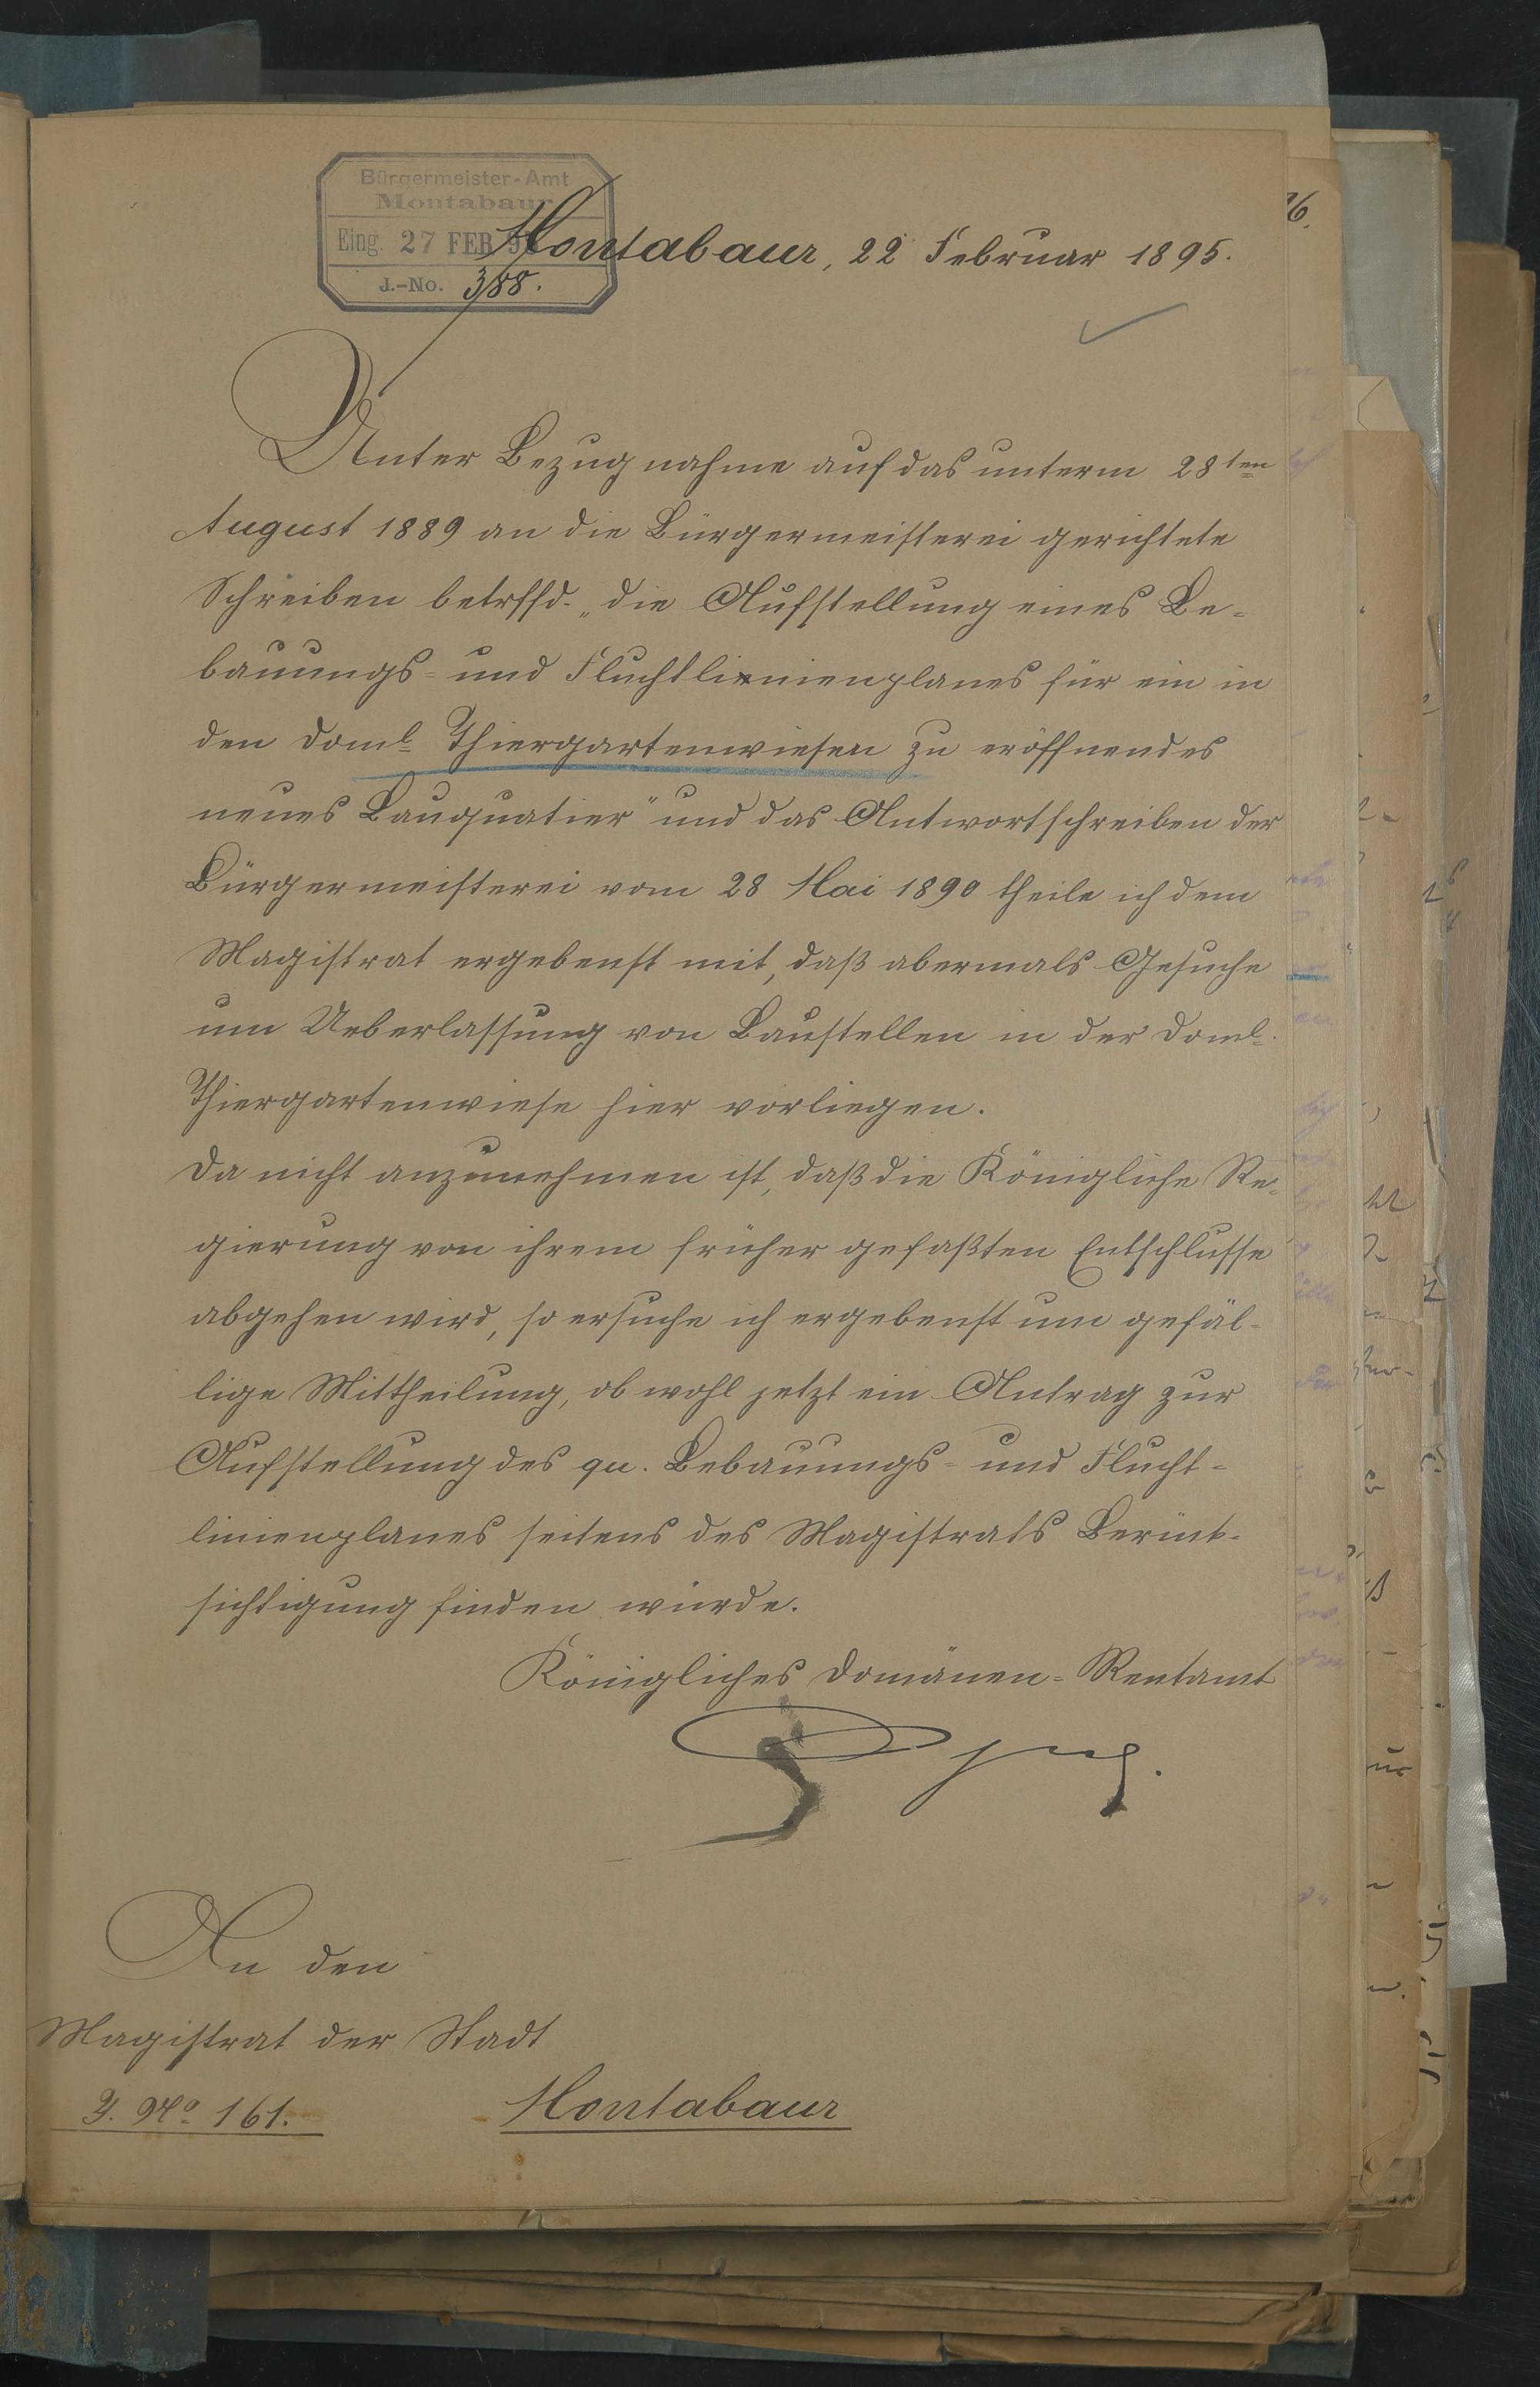 Bürgermeister-Amt
Montabaur
Eing. 27 FEB 95
J.-No. 388.
Montabaur, 22 Februar 1895.
Unter Bezugnahme auf das unterm 28ten
August 1889 an die Bürgermeisterei gerichtete
Schreiben betrffd. „die Aufstellung eines Be-
bauungs- und Fluchtlinienplanes für ein in
den Doml. Thiergartenwiesen zu eröffnendes
neues Bauquatier" und das Antwortschreiben der
Bürgermeisterei vom 28 Mai 1890 theile ich dem
Magistrat ergebenst mit, daß abermals Gesuche
um Ueberlassung von Baustellen in der Doml.
Thiergartenwiese hier vorliegen.
Da nicht anzunehmen ist, daß die Königliche Re-
gierung von ihrem früher gefaßten Entschlusse
abgehen wird, so ersuche ich ergebenst um gefäl-
lige Mittheilung, ob wohl jetzt ein Antrag zur
Aufstellung des qu. Bebauungs- und Flucht-
linienplanes seitens des Magistrats Berück-
sichtigung finden würde.
Königliches Domänen-Rentamt
An den
Magistrat der Stadt
J. No. 161.
Montabaur